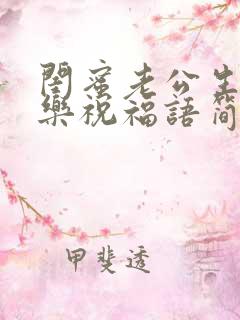 閨蜜老公生
樂祝福語簡
甲斐透